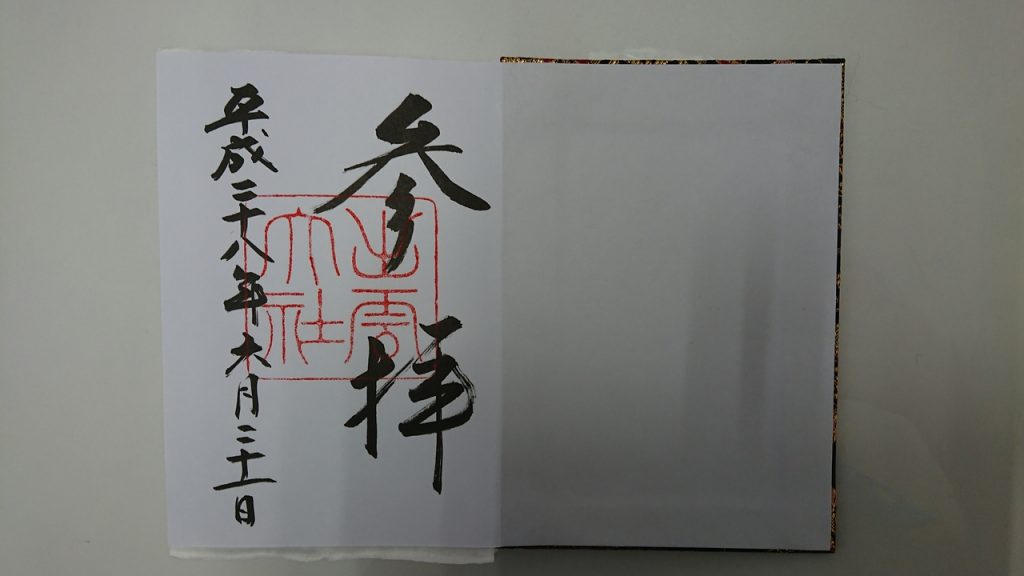 参拝
出雲大社
平成二十八年六月二十一日